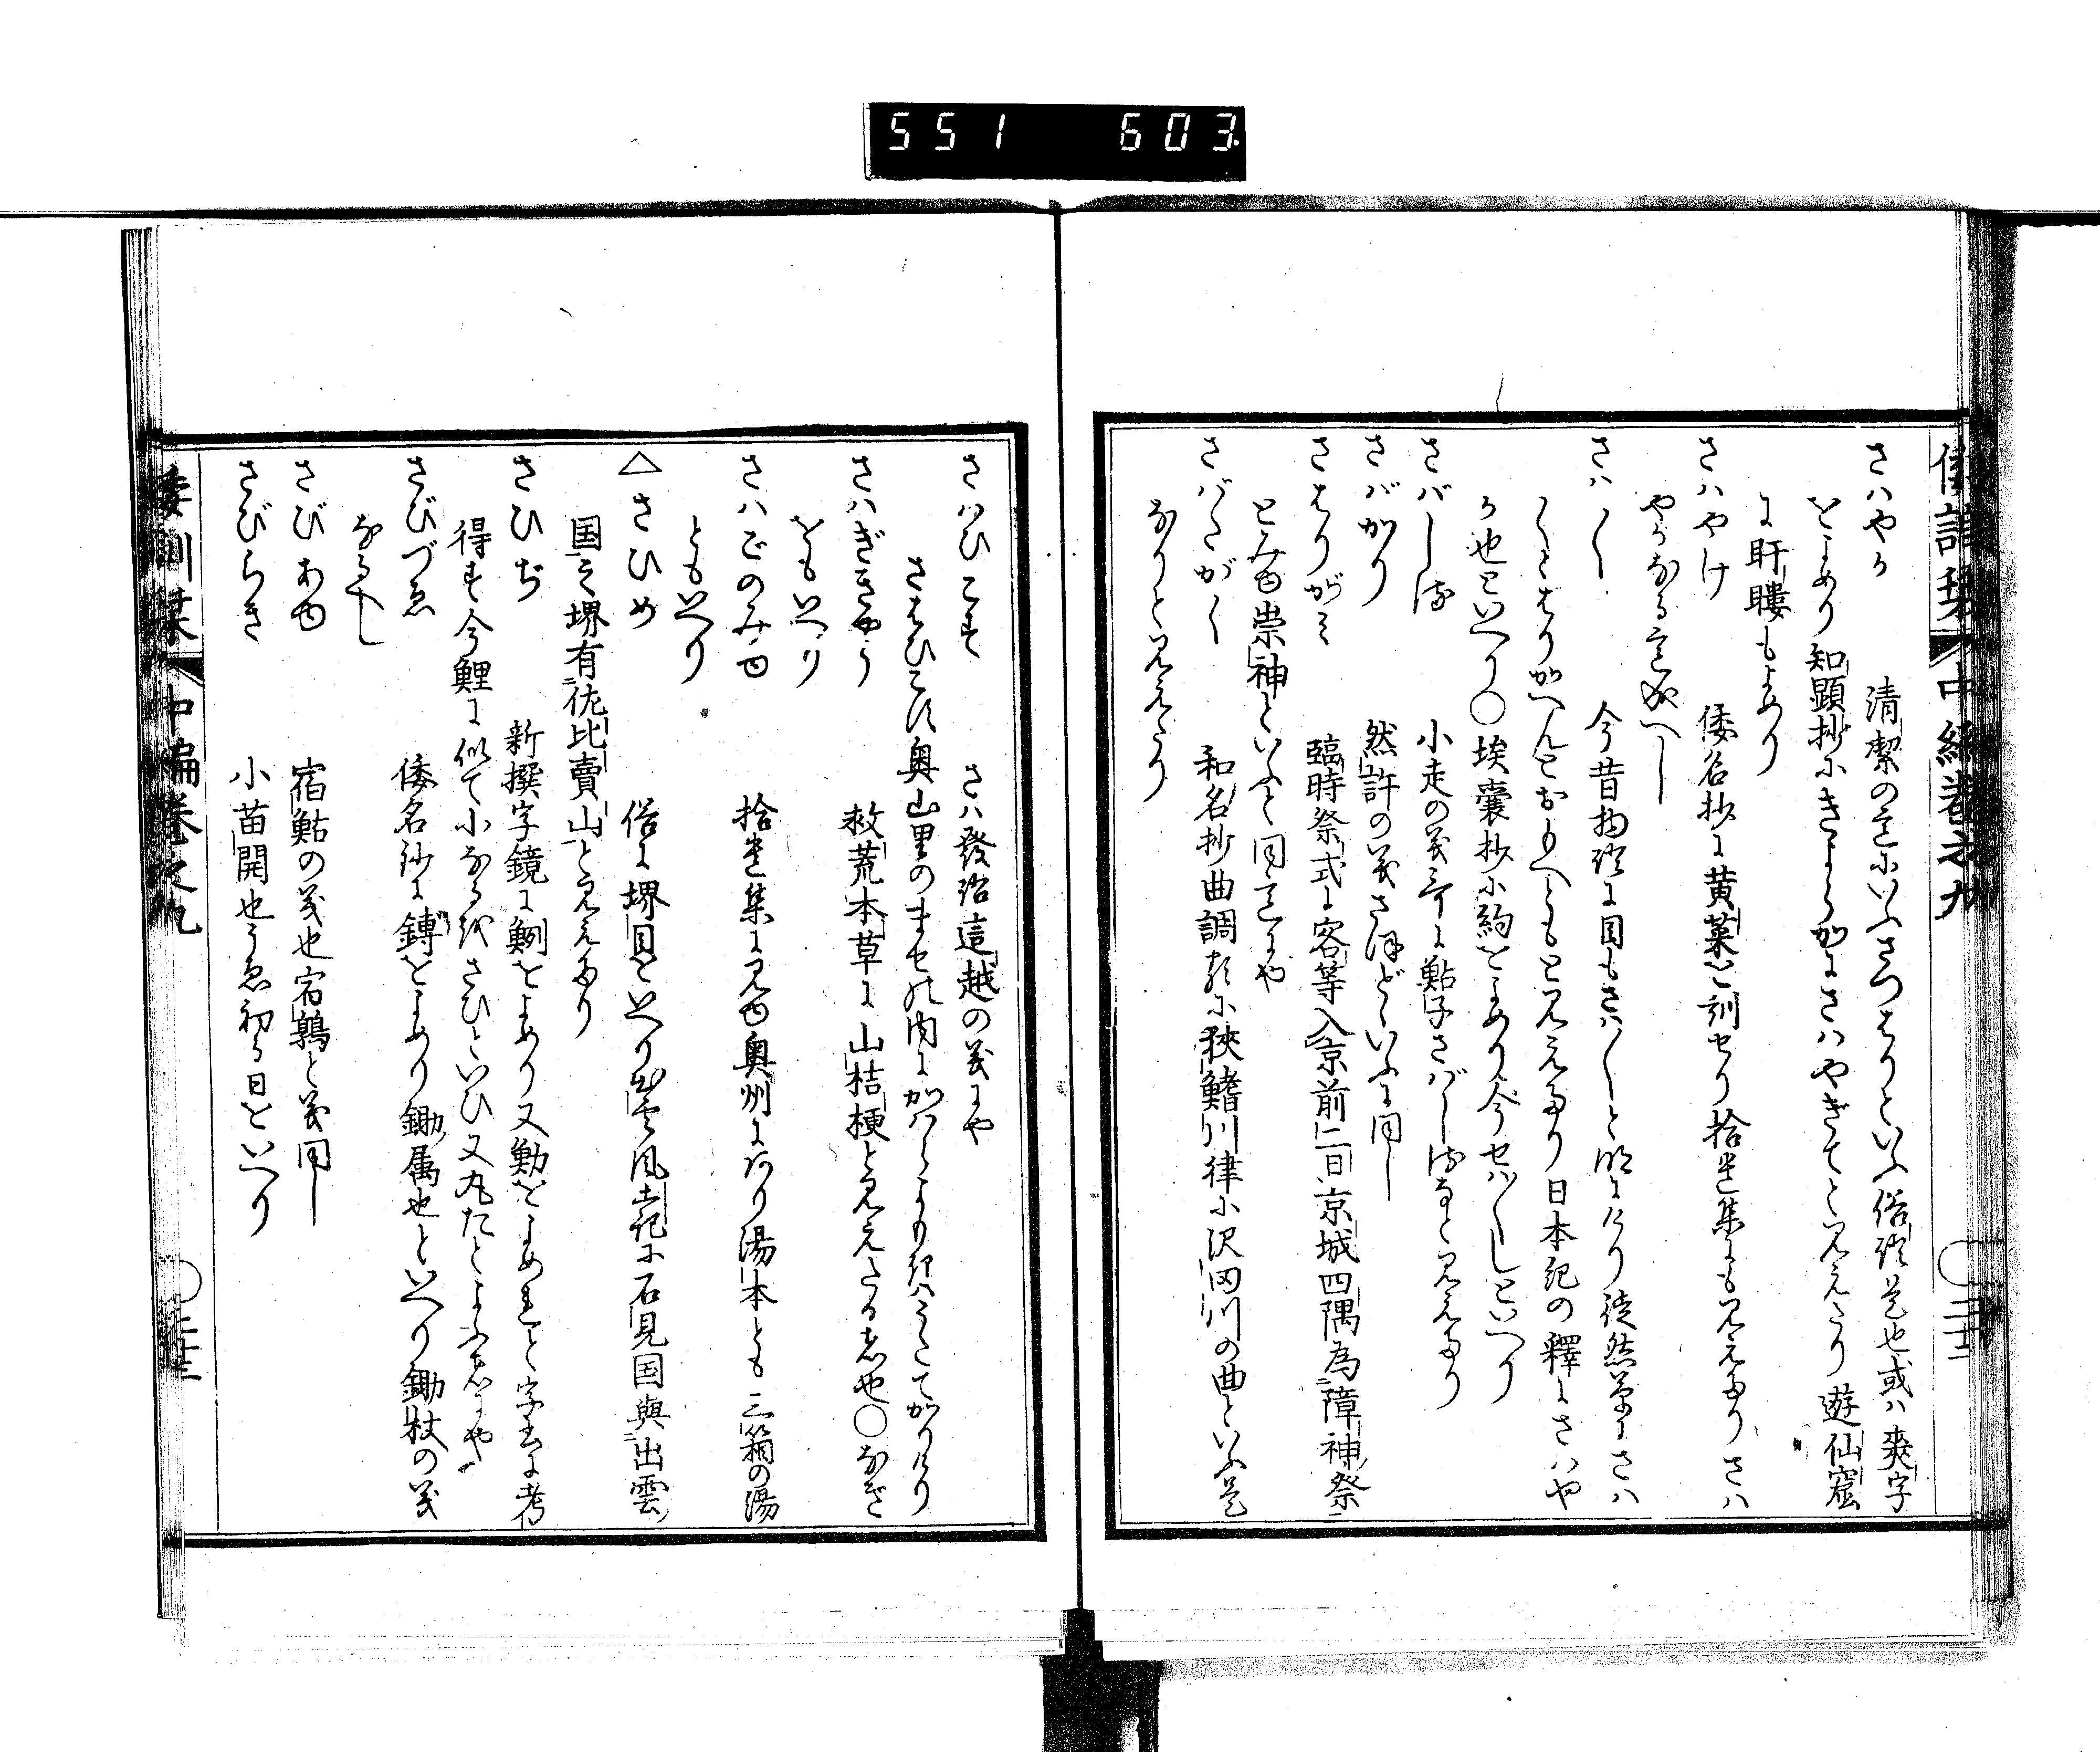 551 603
さハやか 清潔の意にいふさつはりといふ俗語是也或ハ爽字
をよめり知顕抄にきよらかにさハやぎてと見えたり遊仙窟
に盱瞜もよめり
さハやけ 倭名抄に黄菜を訓せり拾遺集にも見えたり さハ
やかなる意成へし
さハ〱 今昔物語に目もさハ〱と明にけり徒然草にさハ
〱とはりかへんとおもへともと見えたり日本紀の釋にさハや
か也といへり○埃嚢抄に約をよめり今せハ〱しといへり
さばしる 小走の義哥に鮎子さばしるなと見えたり
さばかり 然許の義さほどといふに同し
さはりがミ 臨時祭式に客等入京前二日京城四隅為障神祭
とみゆ崇神といふと同意にや
さばたがく 和名抄曲調類に狹鰭川律小沢田川の曲といふ是
なりと見えたり
さハひこす さハ發語這越の義にや
さはひこす奥山里のませの内にかハらよもきハうたてかりけり
さハぎきやう 救荒本草に山桔梗と見えたる者也○なぎ
をもいへり
さハごのみゆ 拾遺集に見ゆ奥州にあり湯本とも三箱の湯
ともいへり
△さひめ 俗に堺目をいへり出雲風土記に石見国與出雲
国之堺有佐比賣山と見えたり
さひぢ 新撰字鏡に鮤をよめり又
得す今鯉に似て小なる物さひといひ又丸たとよふ者にや
さびづゑ 倭名鈔に鎛をよめり鋤属也といへり鋤杖の義
なるへし
さびあゆ 宿鮎の義也宿鶉と義同し
さびらき 小苗開也うゑ初る日をいへり
倭訓栞 中編巻之九